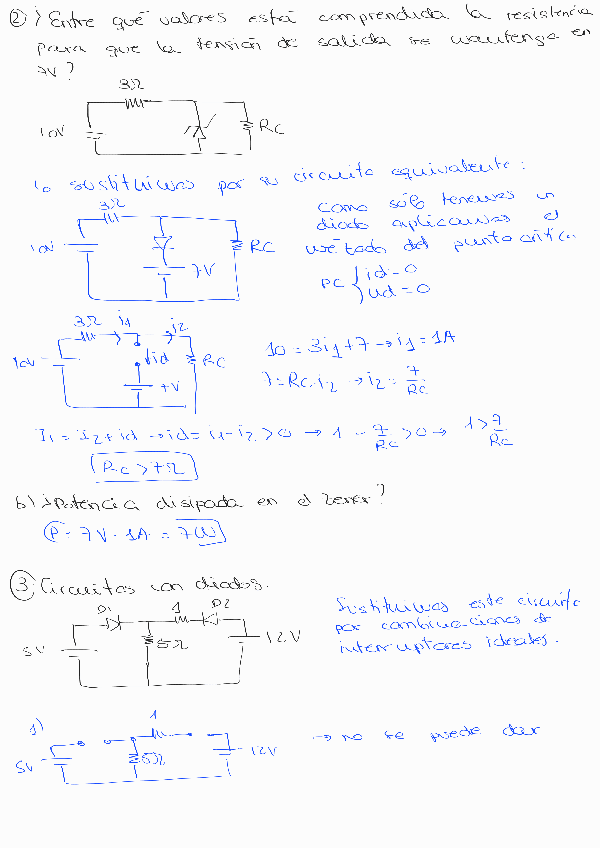 2) ¿Entre qué valores está comprendida la resistencia
para que la tensión de salida se mantenga en
7V?
3Ω
10V
RC
sustituimos por su circuito equivalente:
3Ω
10V
7V
RC
como sólo tenemos un
diodo aplicamos el
método del punto crítico
PC { id=0
ud=0
3Ω i1 i2
10V
id
RC
7V
10 = 3i1+7 → i1 = 1A
7 = RC·i2 → i2 = 7/RC
I1 = i2 + id → id = i1-i2 > 0 → 1 - 7/RC > 0 → 1 > 7/RC
RC > 7Ω
b) ¿Potencia disipada en el zener?
P = 7V · 1A = 7W
3) Circuitos con diodos.
D1 1 D2
5V
5Ω
12V
Sustituimos este circuito
por combinaciones de
interruptores ideales.
1)
1
5V
5Ω
12V
→ no se puede dar